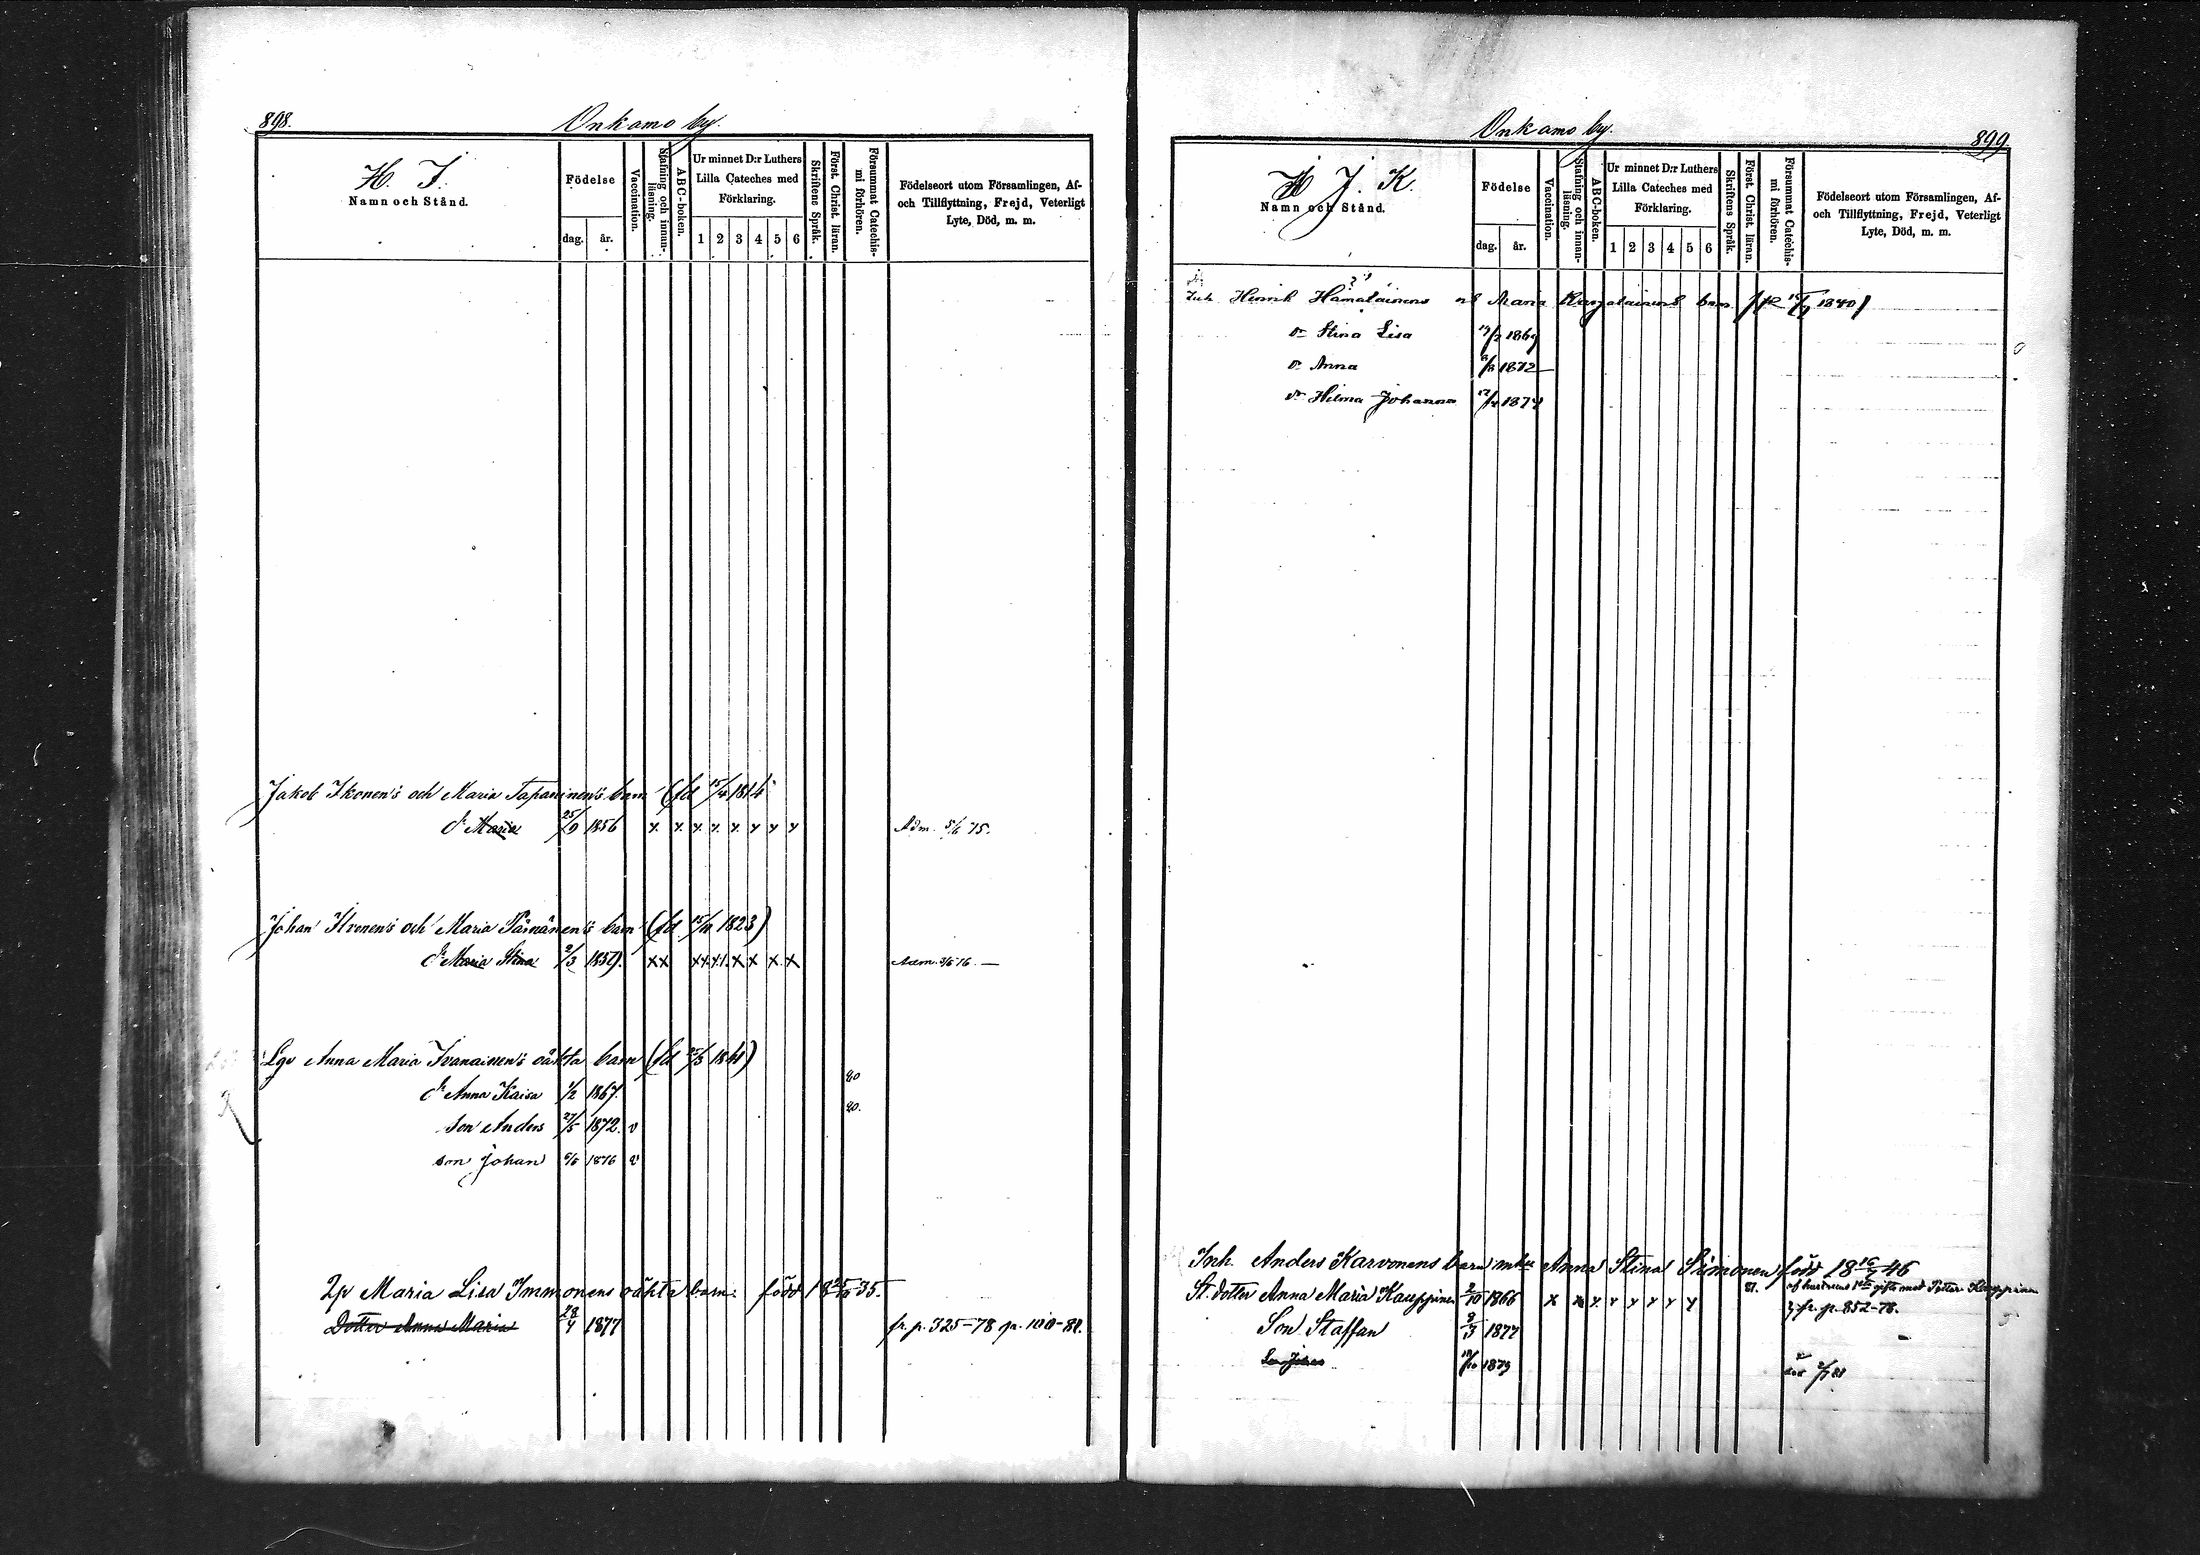 898.
Onkamo by.
H. I.
Namn och Stånd.
Födelse
dag.
år.
Vaccination.
Stafning och innan-
läsning.
ABC-boken.
Ur minnet D:r Luthers
Lilla Cateches med
Förklaring.
1 2 3 4 5 6
Skriftens Språk.
Först. Christ. läran.
Försummat Catechis-
mi förhören.
Födelseort utom Församlingen, Af-
och Tillflyttning, Frejd, Veterligt
Lyte, Död, m. m.
Jakob Ikonen's och Maria Tapaninen's barn (fd 15/4 1814
d. Maria 25/9 1856 Adm. 5/6 75.
Johan och Maria barn (fd 1823)
d. Maria Stina 2/3 1859. Adm. 76. —
Anna Maria oäkta barn (fd 1841)
d. Anna Kaisa 1/2 1867. 80
Son Anders 27/5 1872. v 80.
son Johan 6/6 1876 v
Maria Lisa Immonens oäkta barn. född 18 35.
Dotter Anna Maria 28/4 1877 fr. p. 325–78 p.
Onkamo by.
899
H J. K.
Namn och Stånd.
Födelse
dag.
år.
Vaccination.
Stafning och innan-
läsning.
ABC-boken.
Ur minnet D:r Luthers
Lilla Cateches med
Förklaring.
1 2 3 4 5 6
Skriftens Språk.
Först. Christ. läran.
Försummat Catechis-
mi förhören.
Födelseort utom Församlingen, Af-
och Tillflyttning, Frejd, Veterligt
Lyte, Död, m. m.
Inh. Henrik Hämäläinens Maria Karjalainens barn 1840)
dr Stina Lisa 1869
dr Anna 1872
dr Hilma Johanna 1874
Inh. Anders Karvonens barn m hu Anna Stina Simonen född 18 16/7 46
St. dotter Anna Maria Kauppinen 2/10 1866 81. af hustruns 1sta gifte med Petter Kauppinen
fr. p. 852–78.
Son Staffan 2/3 1877
Son Johan 1879 död 81